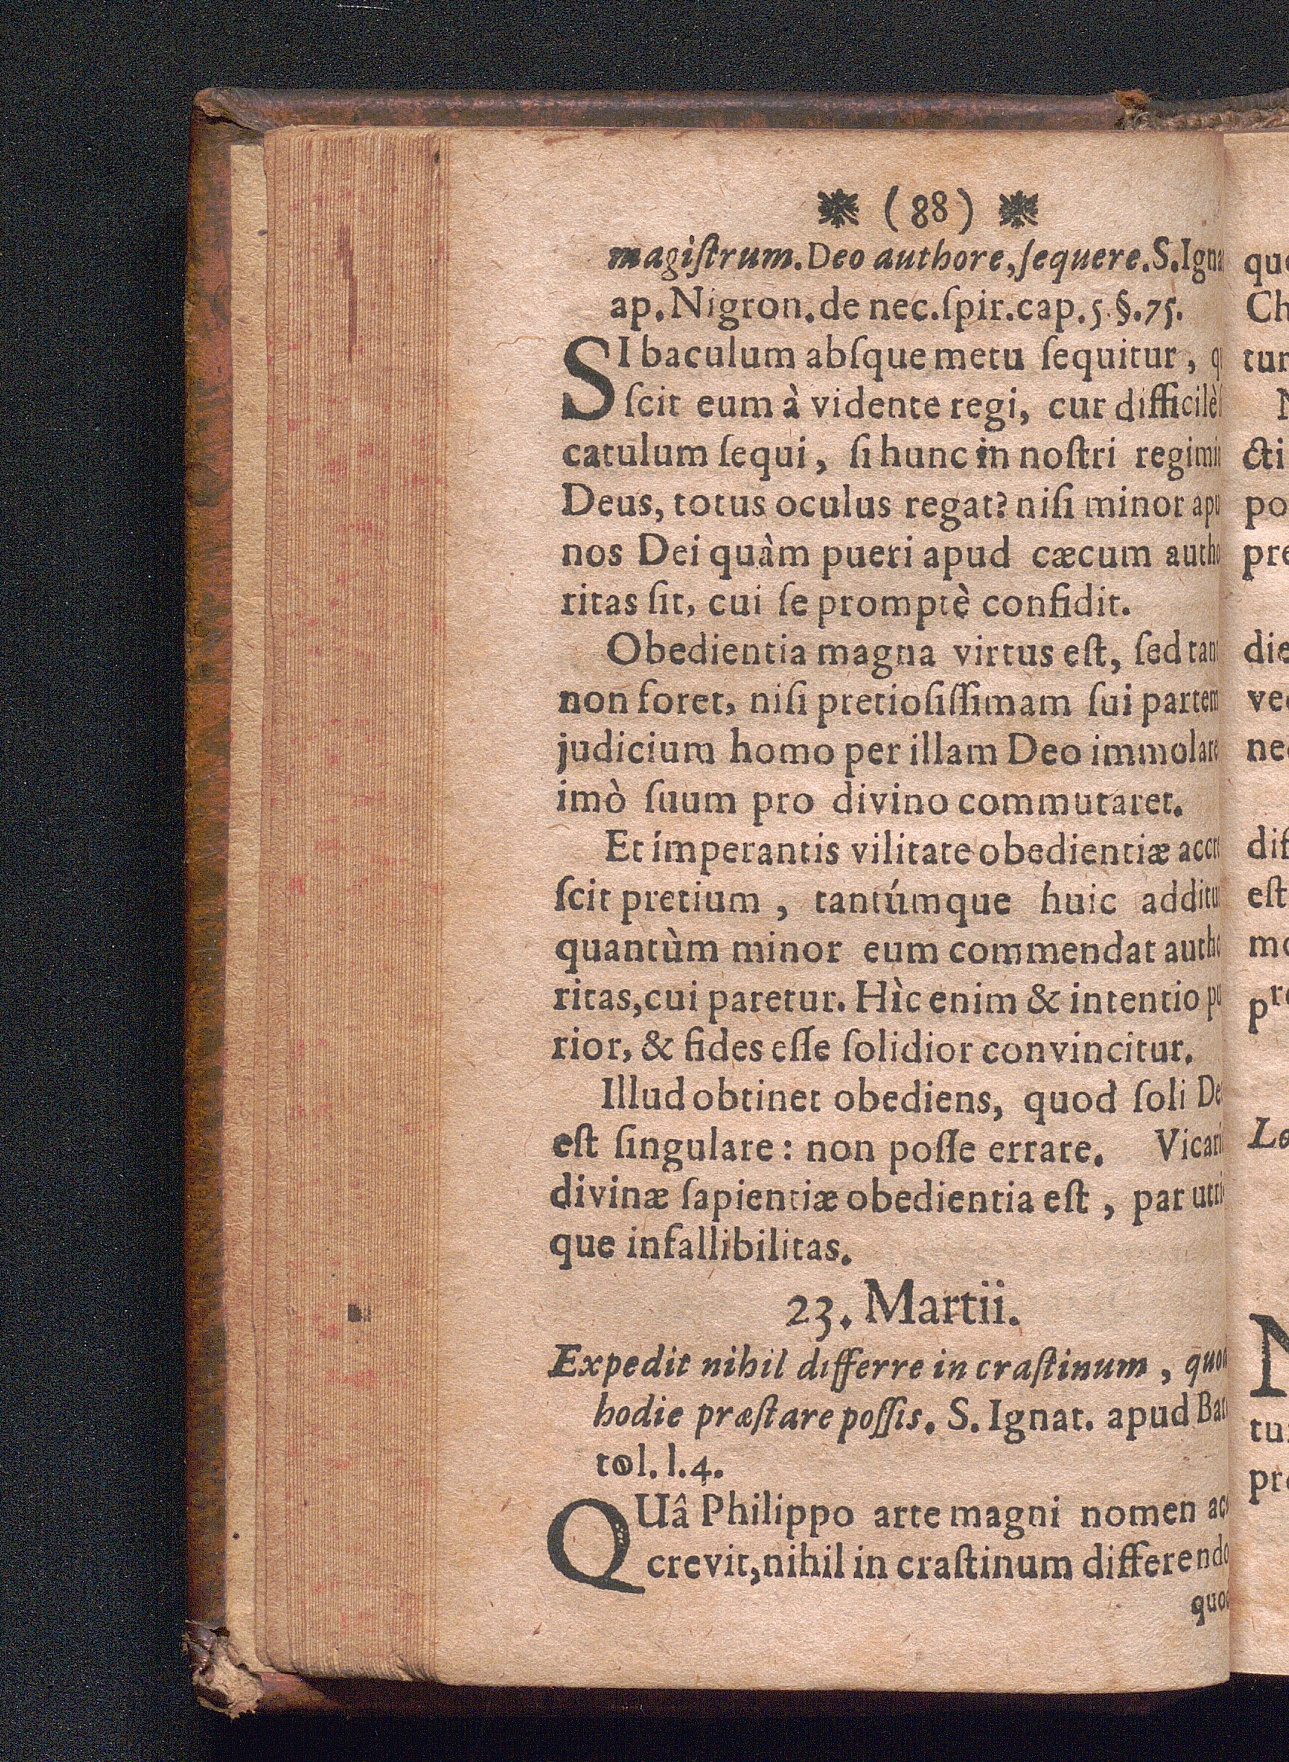 (88)
magiſtrum. Deo authore, ſequere. S. Igna
ap. Nigron. de nec. ſpir. cap. 5 §. 75.
SI baculum abſque metu ſequitur, q
ſcit eum à vidente regi, cur difficilè
catulum ſequi, ſi hunc in noſtri regimi
Deus, totus oculus regat? niſi minor apu
nos Dei quàm pueri apud cæcum autho
ritas ſit, cui ſe promptè confidit.
Obedientia magna virtus eſt, ſed tan
non foret, niſi pretioſiſſimam ſui partem
judicium homo per illam Deo immolare
imò ſuum pro divino commutaret.
Et imperantis vilitate obedientiæ accre
ſcit pretium, tantúmque huic additu
quantùm minor eum commendat autho
ritas, cui paretur. Hìc enim & intentio pu
rior, & fides eſſe ſolidior convincitur.
Illud obtinet obediens, quod ſoli De
eſt ſingulare: non poſſe errare. Vicari
divinæ ſapientiæ obedientia eſt, par utri
que infallibilitas.
23. Martii.
Expedit nihil differre in craſtinum, quod
hodie præſtare poſſis. S. Ignat. apud Bar
tol. l. 4.
QUâ Philippo arte magni nomen ac
crevit, nihil in craſtinum differendo
quod
que
Ch
tur
N
cti
po
pre
die
ve
ne
dif
eſt
mo
pre
Lo
N
tu
pre